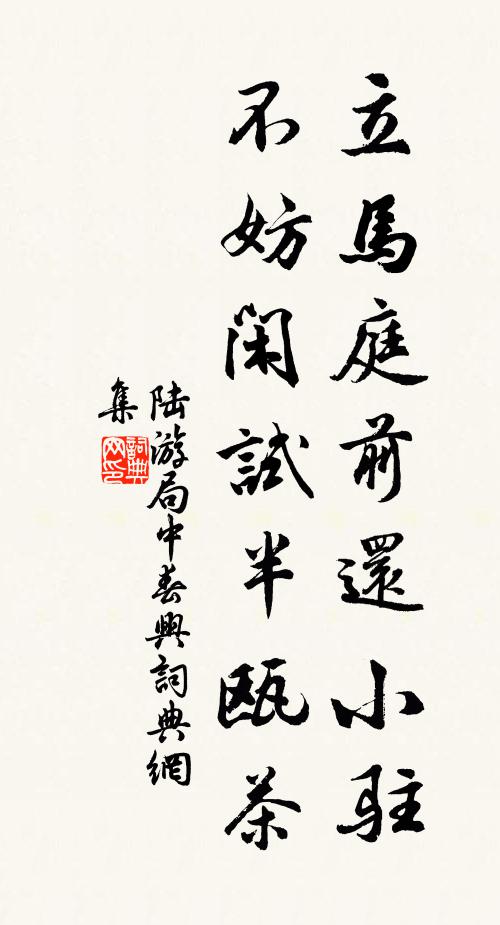 立馬庭前還小駐
不妨閑試半甌茶
陆游局中春興詞典網
集
詞典网印